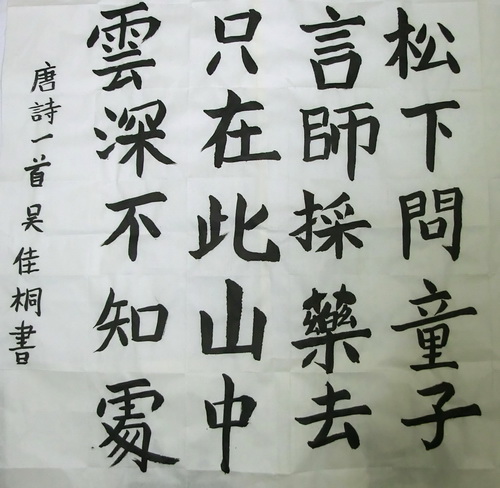 松下問童子
言師採藥去
只在此山中
雲深不知處
唐詩一首吴佳桐書